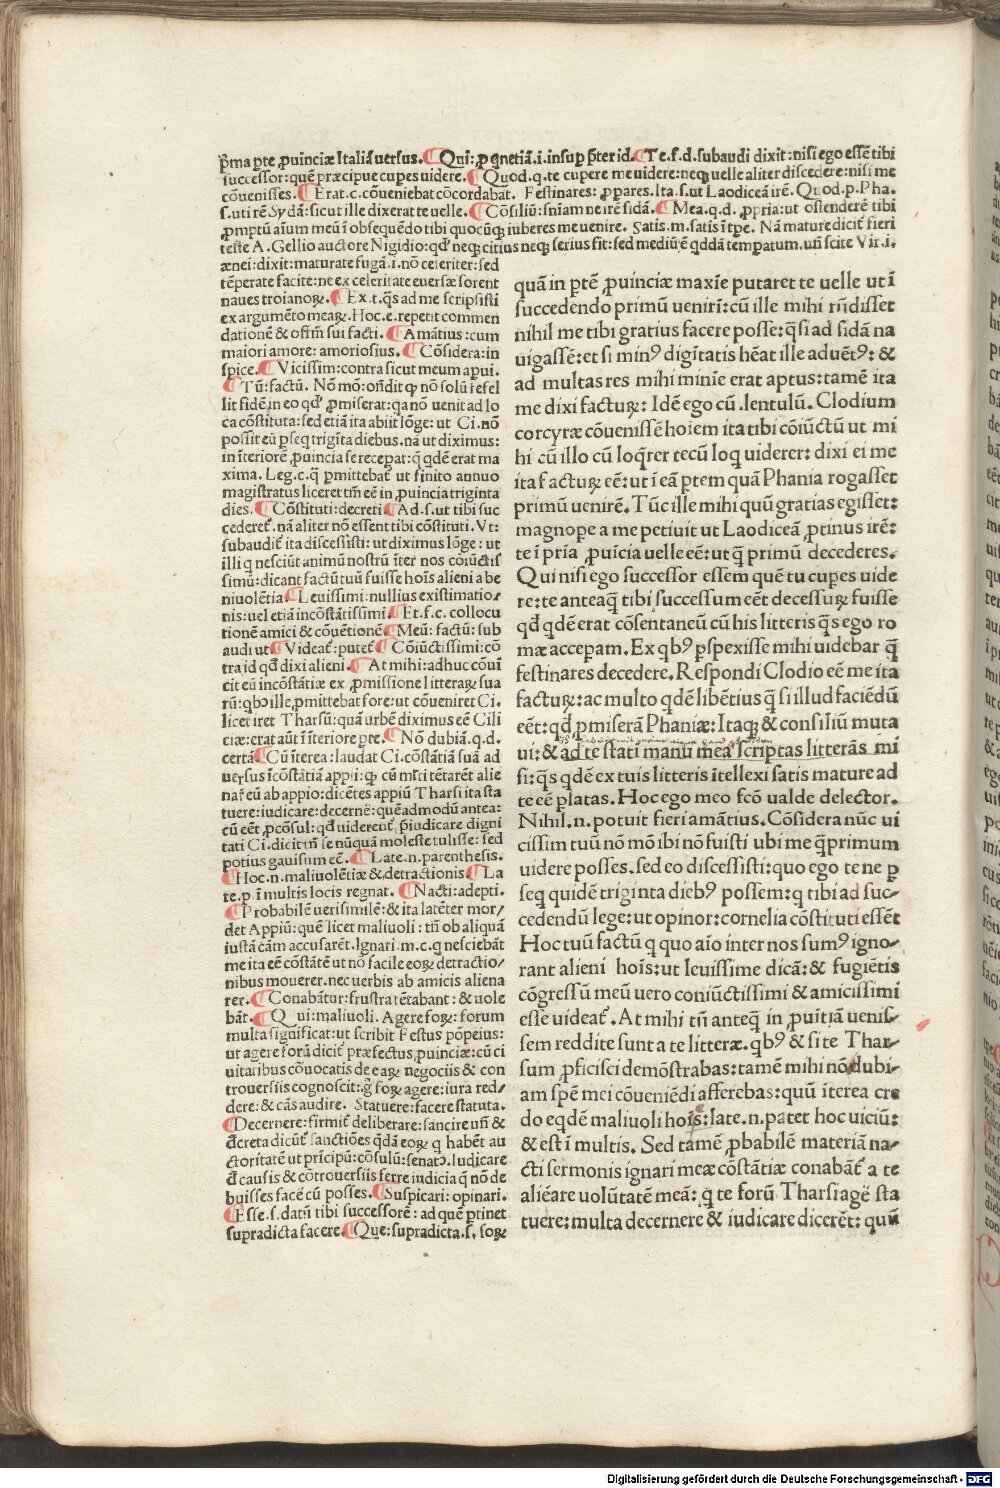 p̄ma ꝑte ꝓuinciæ Italiā uersus. Qui: ꝓ ꝗnetiā.i.insuꝑ p̄ter id. Te.s.d.subaudi dixit:nisi ego essē tibi
successor:quē præcipue cupes uidere. Quod.q.te cupere me uidere:neqꝫ uelle aliter discedere:nisi me
cōuenisses. Erat.c.cōueniebat cōcordabat. Festinares: ꝓꝑares. Ita.s.ut Laodiceā irē. Quod.p.Pha.
s.uti rē Sydā:sicut ille dixerat te uelle. Cōsiliū:sniam ne irē sidā. Mea.q.d. ꝓpria:ut ostenderē tibi
ꝓmptū aīum meū ī obsequēdo tibi quocūqꝫ iuberes me uenire. Satis.m.satis ītꝑe. Nā mature dicit̄ fieri
teste A. Gellio auctore Nigidio:qđ neqꝫ citius neqꝫ serius fit: sed mediū rē qđdā temꝑatum.uñ scite Vir.i.
ænei:dixit:maturate fugā.i.nō celeriter:sed
tēperate facite:ne ex celeritate euersæ forent
naues troianoꝝ. Ex.t.q̄s ad me scripsisti
ex argumēto meaꝝ. Hoc.e.repetit commen
dationē & offīm sui facti. Amātius:cum
maiori amore: amoriosius. Cōsidera:in
spice. Vicissim:contra sicut meum apui.
Tū: factū. Nō mō:oñdit ꝙ nō solū refel
lit fidē in eo qđ ꝓmiserat:qa nō uenit ad lo
ca cōstituta:sed etiā ita abiit lōge: ut Ci.nō
possit eū ꝑseq trigīta diebus.nā ut diximus:
in īteriorē ꝓuincia se receꝑat:q̄ qdē erat ma
xima. Leg.c.q̄ ꝑmittebat̄ ut finito annuo
magistratus liceret tm̄ eē in ꝓuincia triginta
dies. Cōstituti:decreti Ad.s.ut tibi suc
cederet̄.nā aliter nō essent tibi cōstituti. Vt:
subaudit̄ ita discessisti: ut diximus lōge: ut
illi q nesciūt animū nostrū īter nos cōiūctis
simū:dicant factū tuū fuisse hoīs alieni a be
niuolētia Leuissimi: nullius existimatio⸗
nis:uel etiā incōstātissimi. Et.f.c.collocu
tionē amici & cōuētionē Meū: factū:sub
audi ut Videat̄: putet̄ Cōiūctissimi:cō
tra id qđ dixi alieni. At mihi:adhuc cōui
cit eū incōstātiæ ex ꝓmissione litteraꝝ sua
rū:qbꝰ ille ꝓmittebat fore:ut cōueniret Ci.
licet iret Tharsū:quā urbē diximus eē Cili
ciæ:erat aūt ī īteriore ꝑte. Nō dubiā.q.d.
certā Cū īterea:laudat Ci.cōstātiā suā ad
uersus īcōstātiā appii:ꝙ cū mlti tētarēt alie
nare eū ab appio:dicētes appiū Tharsi ita sta
tuere:iudicare:decernē:quēadmodū antea:
cū eēt ꝓcōsul:qđ uiderent̄ p̄iudicare digni
tati Ci.dicit tm̄ se nūquā moleste tulisse: sed
potius gauisum eē. Late.n.parenthesis.
Hoc.n.maliuolētiæ & detractionis. La
te.p.ī multis locis regnat. Nacti: adepti.
Probabilē uerisimilē: & ita latēter mor⸗
det Appiū:quē licet maliuoli: tñ ob aliquā
iustā cām accusarēt. Ignari.m.c.q nesciebāt
me ita eē cōstātē ut nō facile eoꝝ detractio⸗
nibus mouerer.nec uerbis ab amicis aliena
rer. Conabātur:frustra tētabant: & uole
bāt. Qui:maliuoli. Agere foꝝ: forum
multa significat:ut scribit Festus pōpeius:
ut agere forū dicit̄ præfectus ꝓuinciæ:cū ci
uitatibus cōuocatis de eaꝝ negociis & con
trouersiis cognoscit:g̊ foꝝ agere:iura red⸗
dere: & cās audire. Statuere: facere statuta.
Decernere: firmit̄ deliberare: sancire uñ &
đcreta dicūt̄ sanctiōes qdā eoꝝ q habēt au
ctoritatē ut prīcipū:cōsulū:senatꝰ. Iudicare
đ causis & cōtrouersiis ferre iudicia q̄ nō de
buisses facē cū posses. Suspicari: opinari.
Esse.s.datū tibi successorē: ad quē ꝑtinet
supradicta facere. Que:supradicta.s.foꝝ
quā in ꝑtē ꝓuinciæ maxīe putaret te uelle ut ī
succedendo primū uenirī:cū ille mihi rñdisset
nihil me tibi gratius facere posse: q̄ si ad sidā na
uigassē:et si minꝰ digītatis hēat ille aduētꝰ: &
ad multas res mihi minīe erat aptus:tamē ita
me dixi facturꝝ: Idē ego cū .lentulū. Clodium
corcyræ cōuenissē hoiem ita tibi cōiūctū ut mi
hi cū illo cū loq̄rer tecū loq uiderer: dixi ei me
ita facturꝝ eē: ut ī eā ꝑtem quā Phania rogasset
primū uenirē. Tūc ille mihi quū gratias egisset:
magnope a me petiuit ut Laodiceā ꝓtinus irē:
te ī pria ꝓuīcia uelle eē: ut q̄ primū decederes.
Qui nisi ego successor essem quē tu cuꝑes uide
re:te anteaq̄ tibi successum eēt decessuꝝ fuisse
qđ qdē erat cōsentaneū cū his litteris q̄s ego ro
mæ acceꝑam. Ex qbꝰ ꝑspexisse mihi uidebar q̄
festinares decedere. Respondi Clodio eē me ita
facturꝝ: ac multo qdē libētius q̄ si illud faciēdū
eēt: qđ ꝓmiserā Phaniæ: Itaqꝫ & consiliū muta
ui: & ad te stati manū mea scriptas litterās mi
si: q̄s qdē ex tuis litteris ītellexi satis mature ad
te eē ꝑlatas. Hoc ego meo fcō ualde delector.
Nihil.n.potuit fieri amātius. Cōsidera nūc ui
cissim tuū nō mō ibi nō fuisti ubi me q̄primum
uidere posses. sed eo discessisti: quo ego te ne ꝑ
seq quidē triginta diebꝰ possem: q tibi ad suc⸗
cedendū lege: ut opinor: cornelia cōstituti essēt
Hoc tuū factū q quo aīo inter nos sumꝰ igno⸗
rant alieni hoīs: ut leuissime dicā: & fugiētis
cōgressū meū uero coniūctissimi & amicissimi
esse uideat̄. At mihi tñ anteq̄ in ꝓuītiā uenis⸗
sem reddite sunt a te litteræ. qbꝰ & si te Thar⸗
sum ꝓficisci demōstrabas: tamē mihi nō dubi⸗
am spē mei cōueniēdi afferebas: quū īterea cre
do eqdē maliuoli hoīs: late.n.patet hoc uiciū:
& est ī multis. Sed tamē ꝓbabilē materiā na⸗
cti sermonis ignari meæ cōstātiæ conabāt̄ a te
aliēare uolūtatē meā: q te forū Tharsi agē sta
tuere: multa decernere & iudicare dicerēt: quū
Digitalisierung gefördert durch die Deutsche Forschungsgemeinschaft - DFG